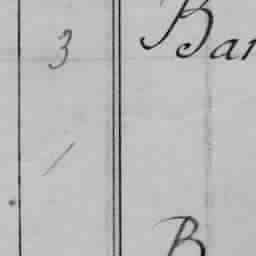 3 Bar
/ B